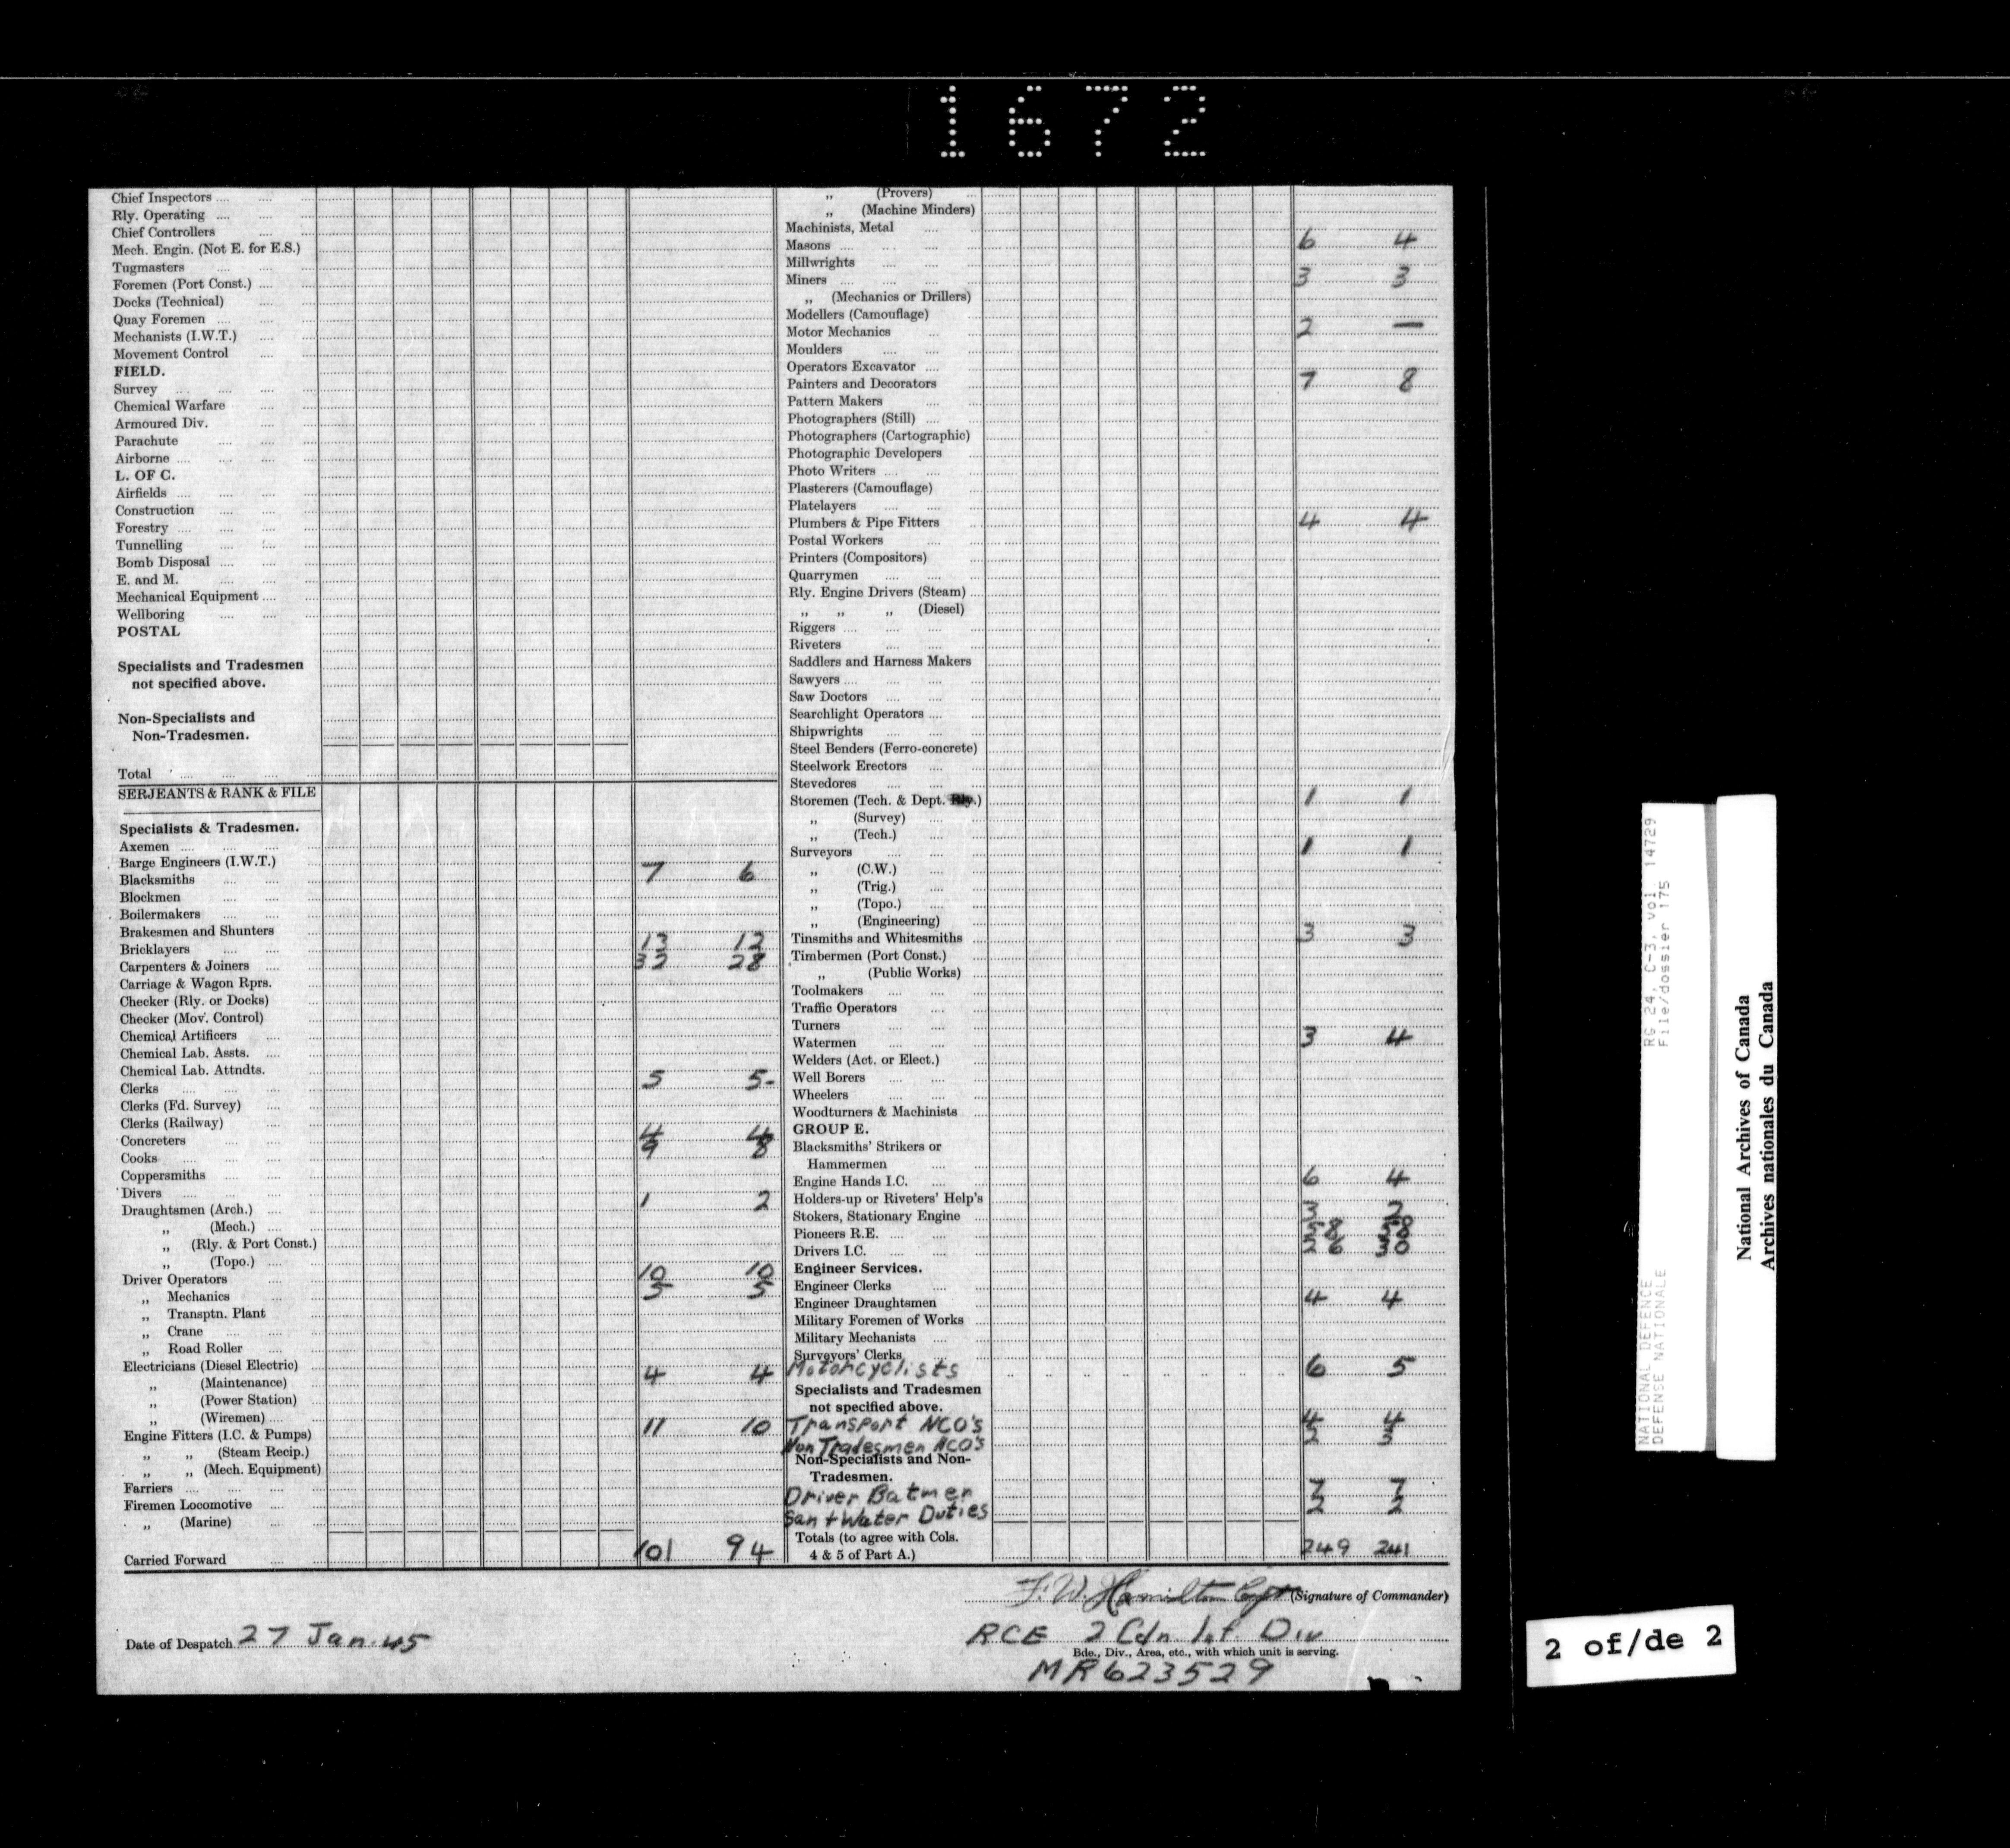 1672
Chief Inspectors ....
Rly. Operating ....
Chief Controllers
Mech. Engin. (Not E. for E.S.)
Tugmasters
Foremen (Port Const.) ....
Docks (Technical)
Quay Foremen ....
Mechanists (I.W.T.)
Movement Control
FIELD.
Survey
Chemical Warfare
Armoured Div.
Parachute
Airborne ....
L. OF C.
Airfields ....
Construction
Forestry ....
Tunnelling
Bomb Disposal ....
E. and M.
Mechanical Equipment ....
Wellboring
POSTAL
Specialists and Tradesmen
not specified above.
Non-Specialists and
Non-Tradesmen.
Total
SERJEANTS & RANK & FILE
Specialists & Tradesmen.
Axemen
Barge Engineers (I.W.T.)
Blacksmiths 7 6
Blockmen
Boilermakers
Brakesmen and Shunters
Bricklayers 13 12
Carpenters & Joiners 32 28
Carriage & Wagon Rprs.
Checker (Rly. or Docks)
Checker (Mov. Control)
Chemical Artificers
Chemical Lab. Assts.
Chemical Lab. Attndts.
Clerks 5 5-
Clerks (Fd. Survey)
Clerks (Railway)
Concreters 4 4
Cooks 9 8
Coppersmiths
Divers
Draughtsmen (Arch.) 1 2
„ (Mech.)
„ (Rly. & Port Const.)
„ (Topo.)
Driver Operators 10 10
„ Mechanics 5 5
„ Transptn. Plant
„ Crane
„ Road Roller
Electricians (Diesel Electric) 4 4
„ (Maintenance)
„ (Power Station)
„ (Wiremen) ....
Engine Fitters (I.C. & Pumps) 11 10
„ „ (Steam Recip.)
„ „ (Mech. Equipment)
Farriers
Firemen Locomotive
„ (Marine)
Carried Forward 101 94
„ (Provers)
„ (Machine Minders)
Machinists, Metal
Masons 6 4
Millwrights
Miners 3 3
„ (Mechanics or Drillers)
Modellers (Camouflage)
Motor Mechanics 2 —
Moulders
Operators Excavator
Painters and Decorators 7 8
Pattern Makers
Photographers (Still)
Photographers (Cartographic)
Photographic Developers
Photo Writers
Plasterers (Camouflage)
Platelayers
Plumbers & Pipe Fitters 4 4
Postal Workers
Printers (Compositors)
Quarrymen
Rly. Engine Drivers (Steam)
„ „ „ (Diesel)
Riggers
Riveters
Saddlers and Harness Makers
Sawyers
Saw Doctors
Searchlight Operators
Shipwrights
Steel Benders (Ferro-concrete)
Steelwork Erectors
Stevedores
Storemen (Tech. & Dept. Rly.) 1 1
„ (Survey)
„ (Tech.)
Surveyors 1 1
„ (C.W.)
„ (Trig.)
„ (Topo.)
„ (Engineering)
Tinsmiths and Whitesmiths 3 3
Timbermen (Port Const.)
„ (Public Works)
Toolmakers
Traffic Operators
Turners
Watermen 3 4
Welders (Act. or Elect.)
Well Borers
Wheelers
Woodturners & Machinists
GROUP E.
Blacksmiths' Strikers or
Hammermen
Engine Hands I.C. 6 4
Holders-up or Riveters' Help's
Stokers, Stationary Engine 3 2
Pioneers R.E. 58 58
Drivers I.C. 26 30
Engineer Services.
Engineer Clerks
Engineer Draughtsmen 4 4
Military Foremen of Works
Military Mechanists
Surveyors' Clerks
Motorcyclists 6 5
Specialists and Tradesmen
not specified above.
Transport NCO's 4 4
Non Tradesmen NCO's 2 3
Non-Specialists and Non-
Tradesmen.
Driver Batmen 7 7
San + Water Duties 2 2
Totals (to agree with Cols.
4 & 5 of Part A.) 249 241
F.W. Hamilton Capt (Signature of Commander)
Date of Despatch 27 Jan. 45
RCE 2 Cdn. Inf. Div
Bde., Div., Area, etc., with which unit is serving.
MR623529
NATIONAL DEFENCE RG 24, C-3, vol. 14729
DEFENSE NATIONALE File/dossier 175
National Archives of Canada
Archives nationales du Canada
2 of/de 2